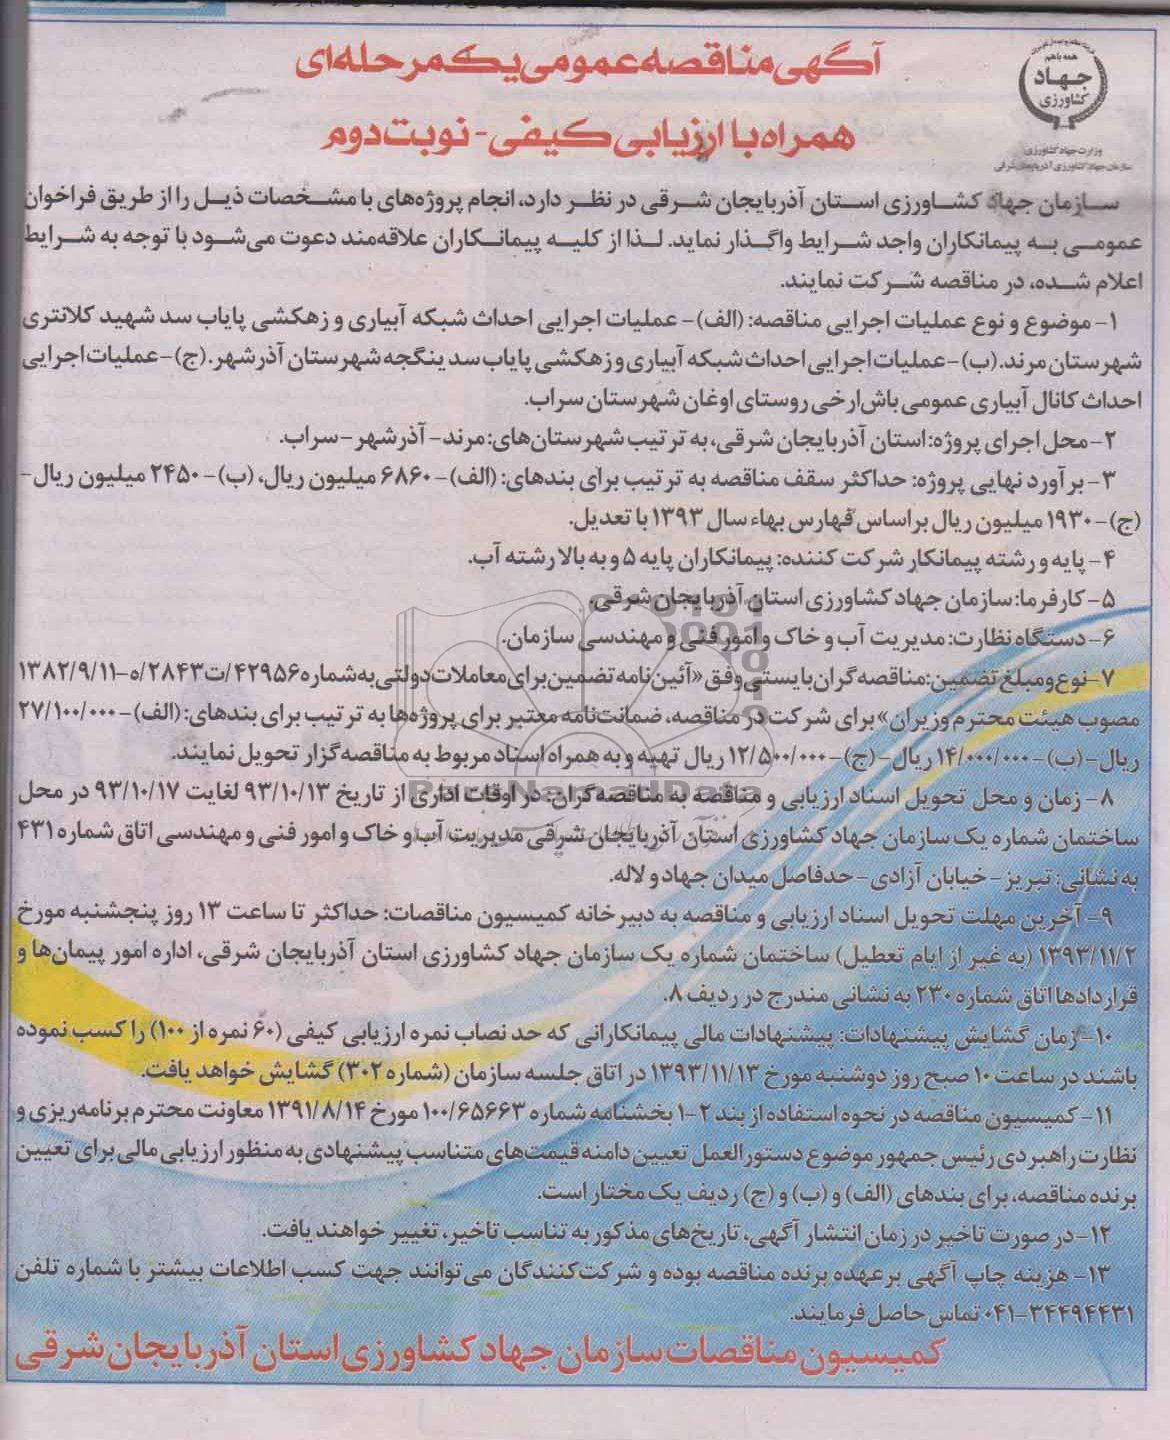 آگهی مناقصه عمومی یک مرحله‌ای
همراه با ارزیابی کیفی - نوبت دوم
همه با هم
جهاد
کشاورزی
وزارت جهاد کشاورزی
سازمان جهاد کشاورزی آذربایجان شرقی
سازمان جهاد کشاورزی استان آذربایجان شرقی در نظر دارد، انجام پروژه‌های با مشخصات ذیل را از طریق فراخوان
عمومی به پیمانکاران واجد شرایط واگذار نماید. لذا از کلیه پیمانکاران علاقه‌مند دعوت می‌شود با توجه به شرایط
اعلام شده، در مناقصه شرکت نمایند.
۱- موضوع و نوع عملیات اجرایی مناقصه: (الف)- عملیات اجرایی احداث شبکه آبیاری و زهکشی پایاب سد شهید کلانتری
شهرستان مرند. (ب)- عملیات اجرایی احداث شبکه آبیاری و زهکشی پایاب سد ینگجه شهرستان آذرشهر. (ج)- عملیات اجرایی
احداث کانال آبیاری عمومی باش‌ارخی روستای اوغان شهرستان سراب.
۲- محل اجرای پروژه: استان آذربایجان شرقی، به ترتیب شهرستان‌های: مرند- آذرشهر- سراب.
۳- برآورد نهایی پروژه: حداکثر سقف مناقصه به ترتیب برای بندهای: (الف)- ۶۸۶۰ میلیون ریال، (ب)- ۲۴۵۰ میلیون ریال-
(ج)- ۱۹۳۰ میلیون ریال براساس فهارس بهاء سال ۱۳۹۳ با تعدیل.
۴- پایه و رشته پیمانکار شرکت کننده: پیمانکاران پایه ۵ و به بالا رشته آب.
۵- کارفرما: سازمان جهاد کشاورزی استان آذربایجان شرقی.
۶- دستگاه نظارت: مدیریت آب و خاک و امور فنی و مهندسی سازمان.
۷- نوع و مبلغ تضمین: مناقصه‌گران بایستی وفق «آئین‌نامه تضمین برای معاملات دولتی به شماره ۴۲۹۵۶/ت۲۸۴۳/ه-۱۳۸۲/۹/۱۱
مصوب هیئت محترم وزیران» برای شرکت در مناقصه، ضمانت‌نامه معتبر برای پروژه‌ها به ترتیب برای بندهای: (الف)- ۲۷/۱۰۰/۰۰۰
ریال- (ب)- ۱۴/۰۰۰/۰۰۰ ریال- (ج)- ۱۲/۵۰۰/۰۰۰ ریال تهیه و به همراه اسناد مربوط به مناقصه‌گزار تحویل نمایند.
۸- زمان و محل تحویل اسناد ارزیابی و مناقصه به مناقصه‌گران: در اوقات اداری از تاریخ ۹۳/۱۰/۱۳ لغایت ۹۳/۱۰/۱۷ در محل
ساختمان شماره یک سازمان جهاد کشاورزی استان آذربایجان شرقی مدیریت آب و خاک و امور فنی و مهندسی اتاق شماره ۴۳۱
به نشانی: تبریز- خیابان آزادی- حدفاصل میدان جهاد و لاله.
۹- آخرین مهلت تحویل اسناد ارزیابی و مناقصه به دبیرخانه کمیسیون مناقصات: حداکثر تا ساعت ۱۳ روز پنجشنبه مورخ
۱۳۹۳/۱۱/۲ (به غیر از ایام تعطیل) ساختمان شماره یک سازمان جهاد کشاورزی استان آذربایجان شرقی، اداره امور پیمان‌ها و
قراردادها اتاق شماره ۲۳۰ به نشانی مندرج در ردیف ۸.
۱۰- زمان گشایش پیشنهادات: پیشنهادات مالی پیمانکارانی که حد نصاب نمره ارزیابی کیفی (۶۰ نمره از ۱۰۰) را کسب نموده
باشند در ساعت ۱۰ صبح روز دوشنبه مورخ ۱۳۹۳/۱۱/۱۳ در اتاق جلسه سازمان (شماره ۳۰۲) گشایش خواهد یافت.
۱۱- کمیسیون مناقصه در نحوه استفاده از بند ۲-۱ بخشنامه شماره ۱۰۰/۶۵۶۶۳ مورخ ۱۳۹۱/۸/۱۴ معاونت محترم برنامه‌ریزی و
نظارت راهبردی رئیس جمهور موضوع دستورالعمل تعیین دامنه قیمت‌های متناسب پیشنهادی به منظور ارزیابی مالی برای تعیین
برنده مناقصه، برای بندهای (الف) و (ب) و (ج) ردیف یک مختار است.
۱۲- در صورت تاخیر در زمان انتشار آگهی، تاریخ‌های مذکور به تناسب تاخیر، تغییر خواهند یافت.
۱۳- هزینه چاپ آگهی برعهده برنده مناقصه بوده و شرکت‌کنندگان می‌توانند جهت کسب اطلاعات بیشتر با شماره تلفن
۰۴۱-۳۴۴۹۴۴۳۱ تماس حاصل فرمایند.
کمیسیون مناقصات سازمان جهاد کشاورزی استان آذربایجان شرقی